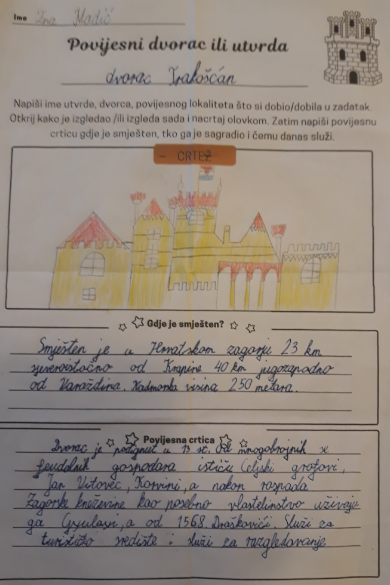 Ime Iva Kladić
Povijesni dvorac ili utvrda
dvorac Trakošćan
Napiši ime utvrde, dvorca, povijesnog lokaliteta što si dobio/dobila u zadatak.
Otkrij kako je izgledao /ili izgleda sada i nacrtaj olovkom. Zatim napiši povijesnu
crticu gdje je smješten, tko ga je sagradio i čemu danas služi.
- CRTEŽ
Gdje je smješten?
Smješten je u Hrvatskom zagorju 23 km
sjeveroistočno od Krapine 40 km jugozapadno
od Varaždina. Nadmorska visina 250 metara.
Povijesna crtica
Dvorac je podignut u 13 st. Od mnogobrojnih
feudalnih gospodara ističu Celjski grofovi,
Jan Vitovec, Korvini, a nakon raspada
Zagorske kneževine kao posebno vlastelinstvo uživaju
ga Gyulayi, a od 1568. Draškovići. Služi za
turističko središte i služi za razgledavanje